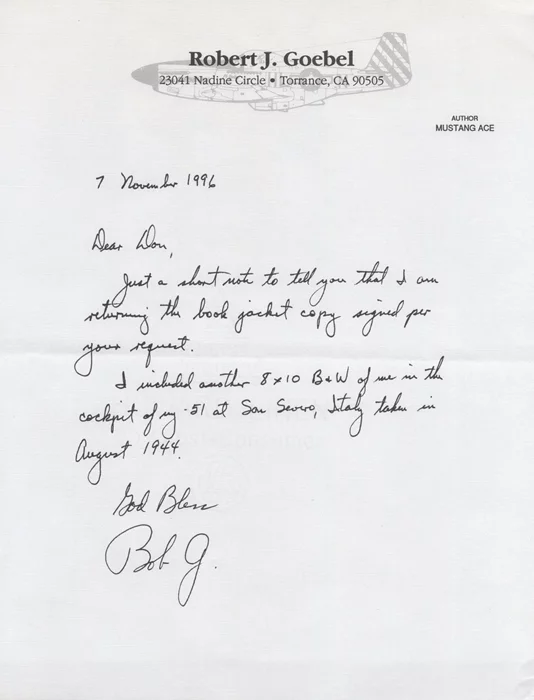 Robert J. Goebel
23041 Nadine Circle • Torrance, CA 90505
AUTHOR
MUSTANG ACE
7 November 1996
Dear Don,
Just a short note to tell you that I am
returning the book jacket copy signed per
your request.
I included another 8x10 B&W of me in the
cockpit of my -51 at San Severo, Italy taken in
August 1944.
God Bless
Bob G.